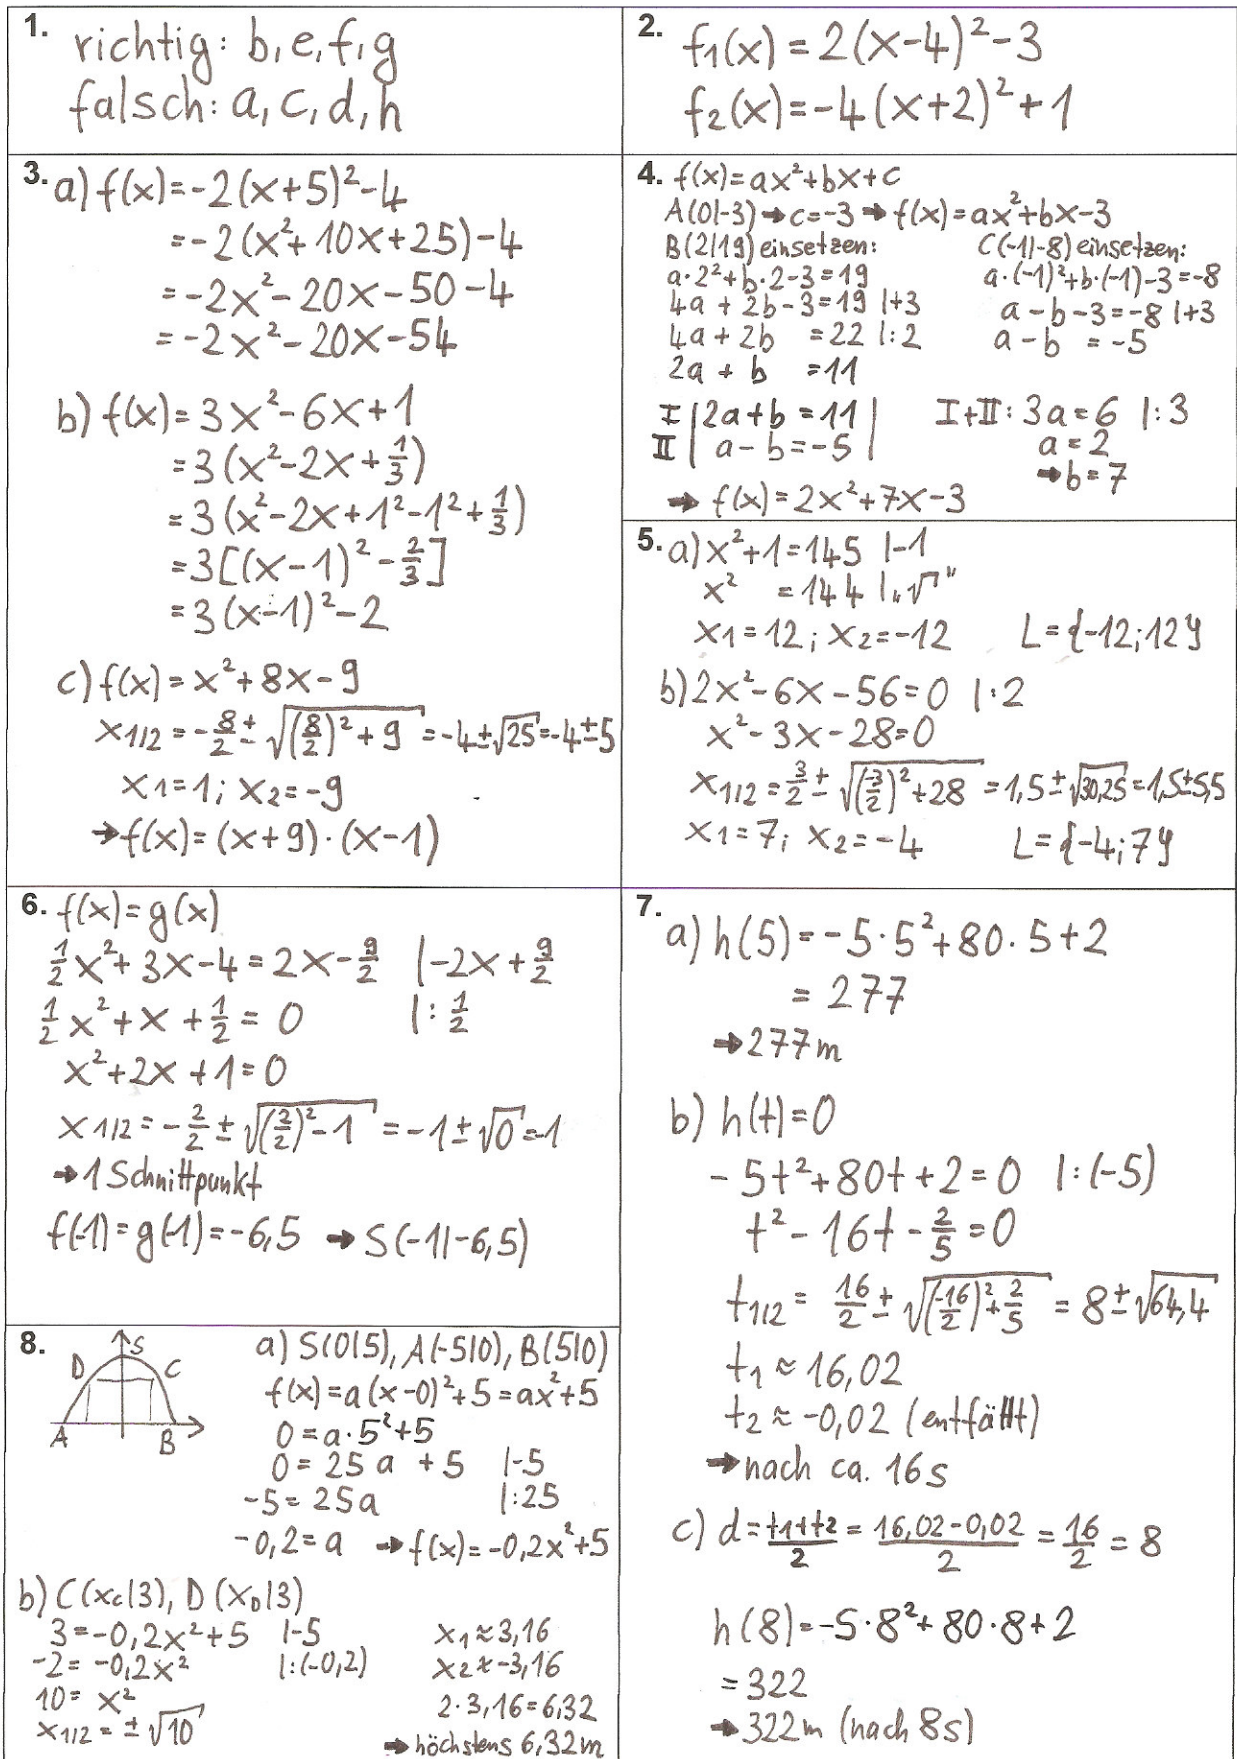 1. richtig: b, e, f, g
falsch: a, c, d, h
2. f₁(x) = 2(x-4)²-3
f₂(x) = -4(x+2)²+1
3. a) f(x) = -2(x+5)²-4
= -2(x²+10x+25)-4
= -2x²-20x-50-4
= -2x²-20x-54
b) f(x) = 3x²-6x+1
= 3(x²-2x+1/3)
= 3(x²-2x+1²-1²+1/3)
= 3[(x-1)²-2/3]
= 3(x-1)²-2
c) f(x) = x²+8x-9
x1/2 = -8/2 ± √((8/2)²+9) = -4±√25 = -4±5
x₁=1; x₂=-9
→ f(x) = (x+9)·(x-1)
4. f(x)=ax²+bx+c
A(0|-3) → c=-3 → f(x)=ax²+bx-3
B(2|19) einsetzen: C(-1|-8) einsetzen:
a·2²+b·2-3=19 a·(-1)²+b·(-1)-3=-8
4a+2b-3=19 |+3 a-b-3=-8 |+3
4a+2b =22 |:2 a-b =-5
2a+b =11
I |2a+b=11| I+II: 3a=6 |:3
II |a-b=-5| a=2
→ b=7
→ f(x)=2x²+7x-3
5. a) x²+1=145 |-1
x² =144 |„√"
x₁=12; x₂=-12 L={-12;12}
b) 2x²-6x-56=0 |:2
x²-3x-28=0
x1/2 = 3/2 ± √((-3/2)²+28) = 1,5±√30,25 = 1,5±5,5
x₁=7; x₂=-4 L={-4;7}
6. f(x)=g(x)
1/2x²+3x-4=2x-9/2 |-2x+9/2
1/2x²+x+1/2=0 |:1/2
x²+2x+1=0
x1/2 = -2/2 ± √((2/2)²-1) = -1±√0 = -1
→ 1 Schnittpunkt
f(-1)=g(-1)=-6,5 → S(-1|-6,5)
7. a) h(5) = -5·5²+80·5+2
= 277
→ 277m
b) h(t)=0
-5t²+80t+2=0 |:(-5)
t²-16t-2/5=0
t1/2 = 16/2 ± √((-16/2)²+2/5) = 8±√64,4
t₁≈16,02
t₂≈-0,02 (entfällt)
→ nach ca. 16s
c) d = (t₁+t₂)/2 = (16,02-0,02)/2 = 16/2 = 8
h(8) = -5·8²+80·8+2
= 322
→ 322m (nach 8s)
8. S D C A B
a) S(0|5), A(-5|0), B(5|0)
f(x)=a(x-0)²+5=ax²+5
0=a·5²+5
0=25a+5 |-5
-5=25a |:25
-0,2=a → f(x)=-0,2x²+5
b) C(xc|3), D(xD|3)
3=-0,2x²+5 |-5 x₁≈3,16
-2=-0,2x² |:(-0,2) x₂≈-3,16
10=x² 2·3,16=6,32
x1/2=±√10 → höchstens 6,32m